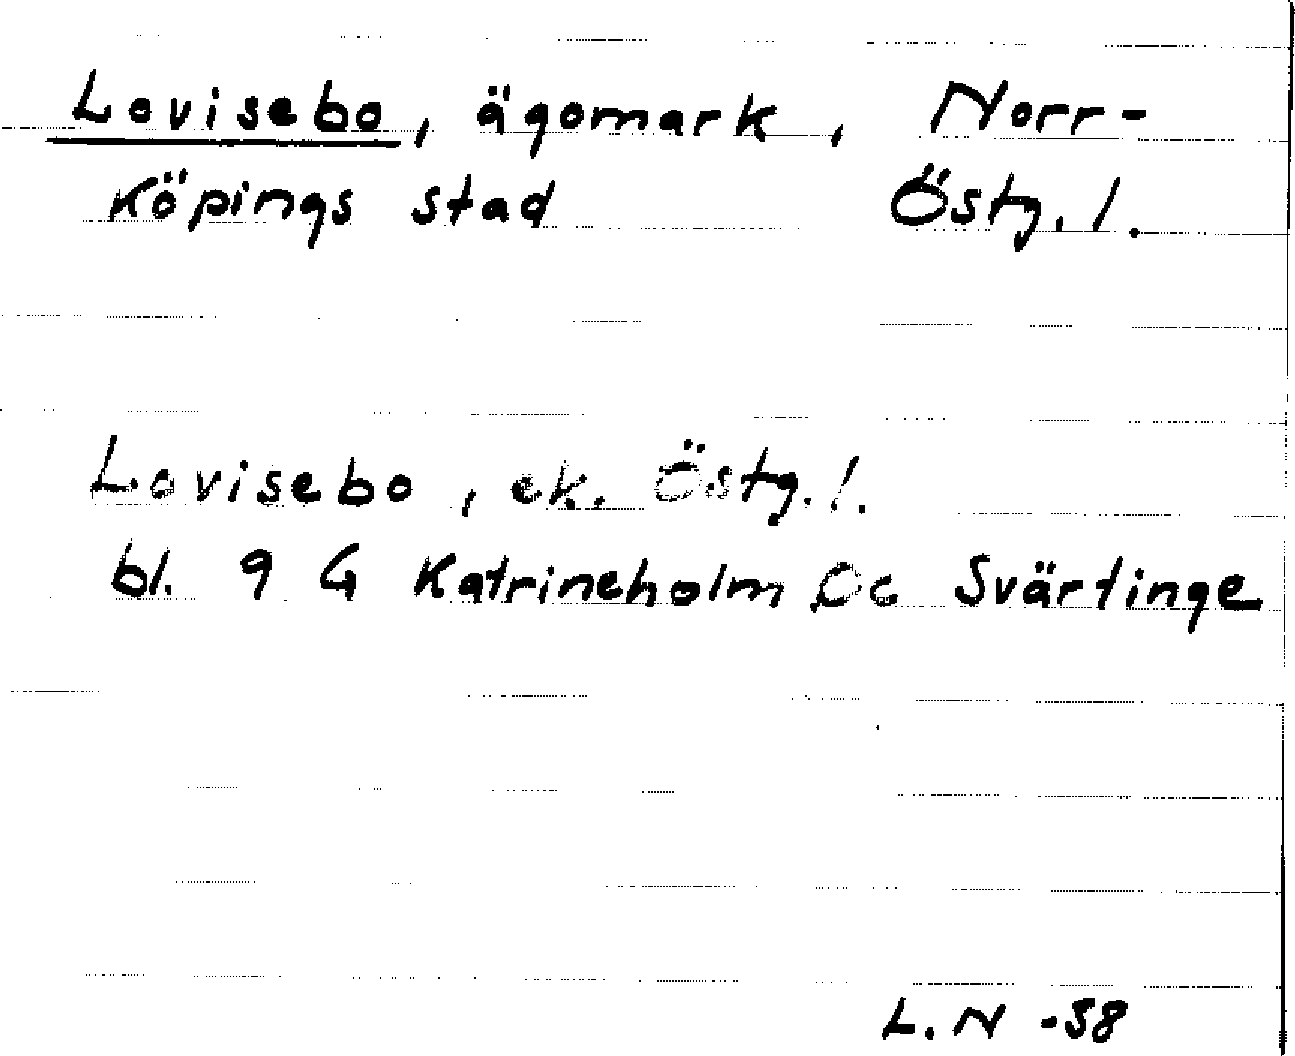 Lovisebo, ägomark, Norr-
köpings stad Östg. l.
Lovisebo, ek. Östg. l.
bl. 9 G Katrineholm Oc Svärtinge
L. N -58